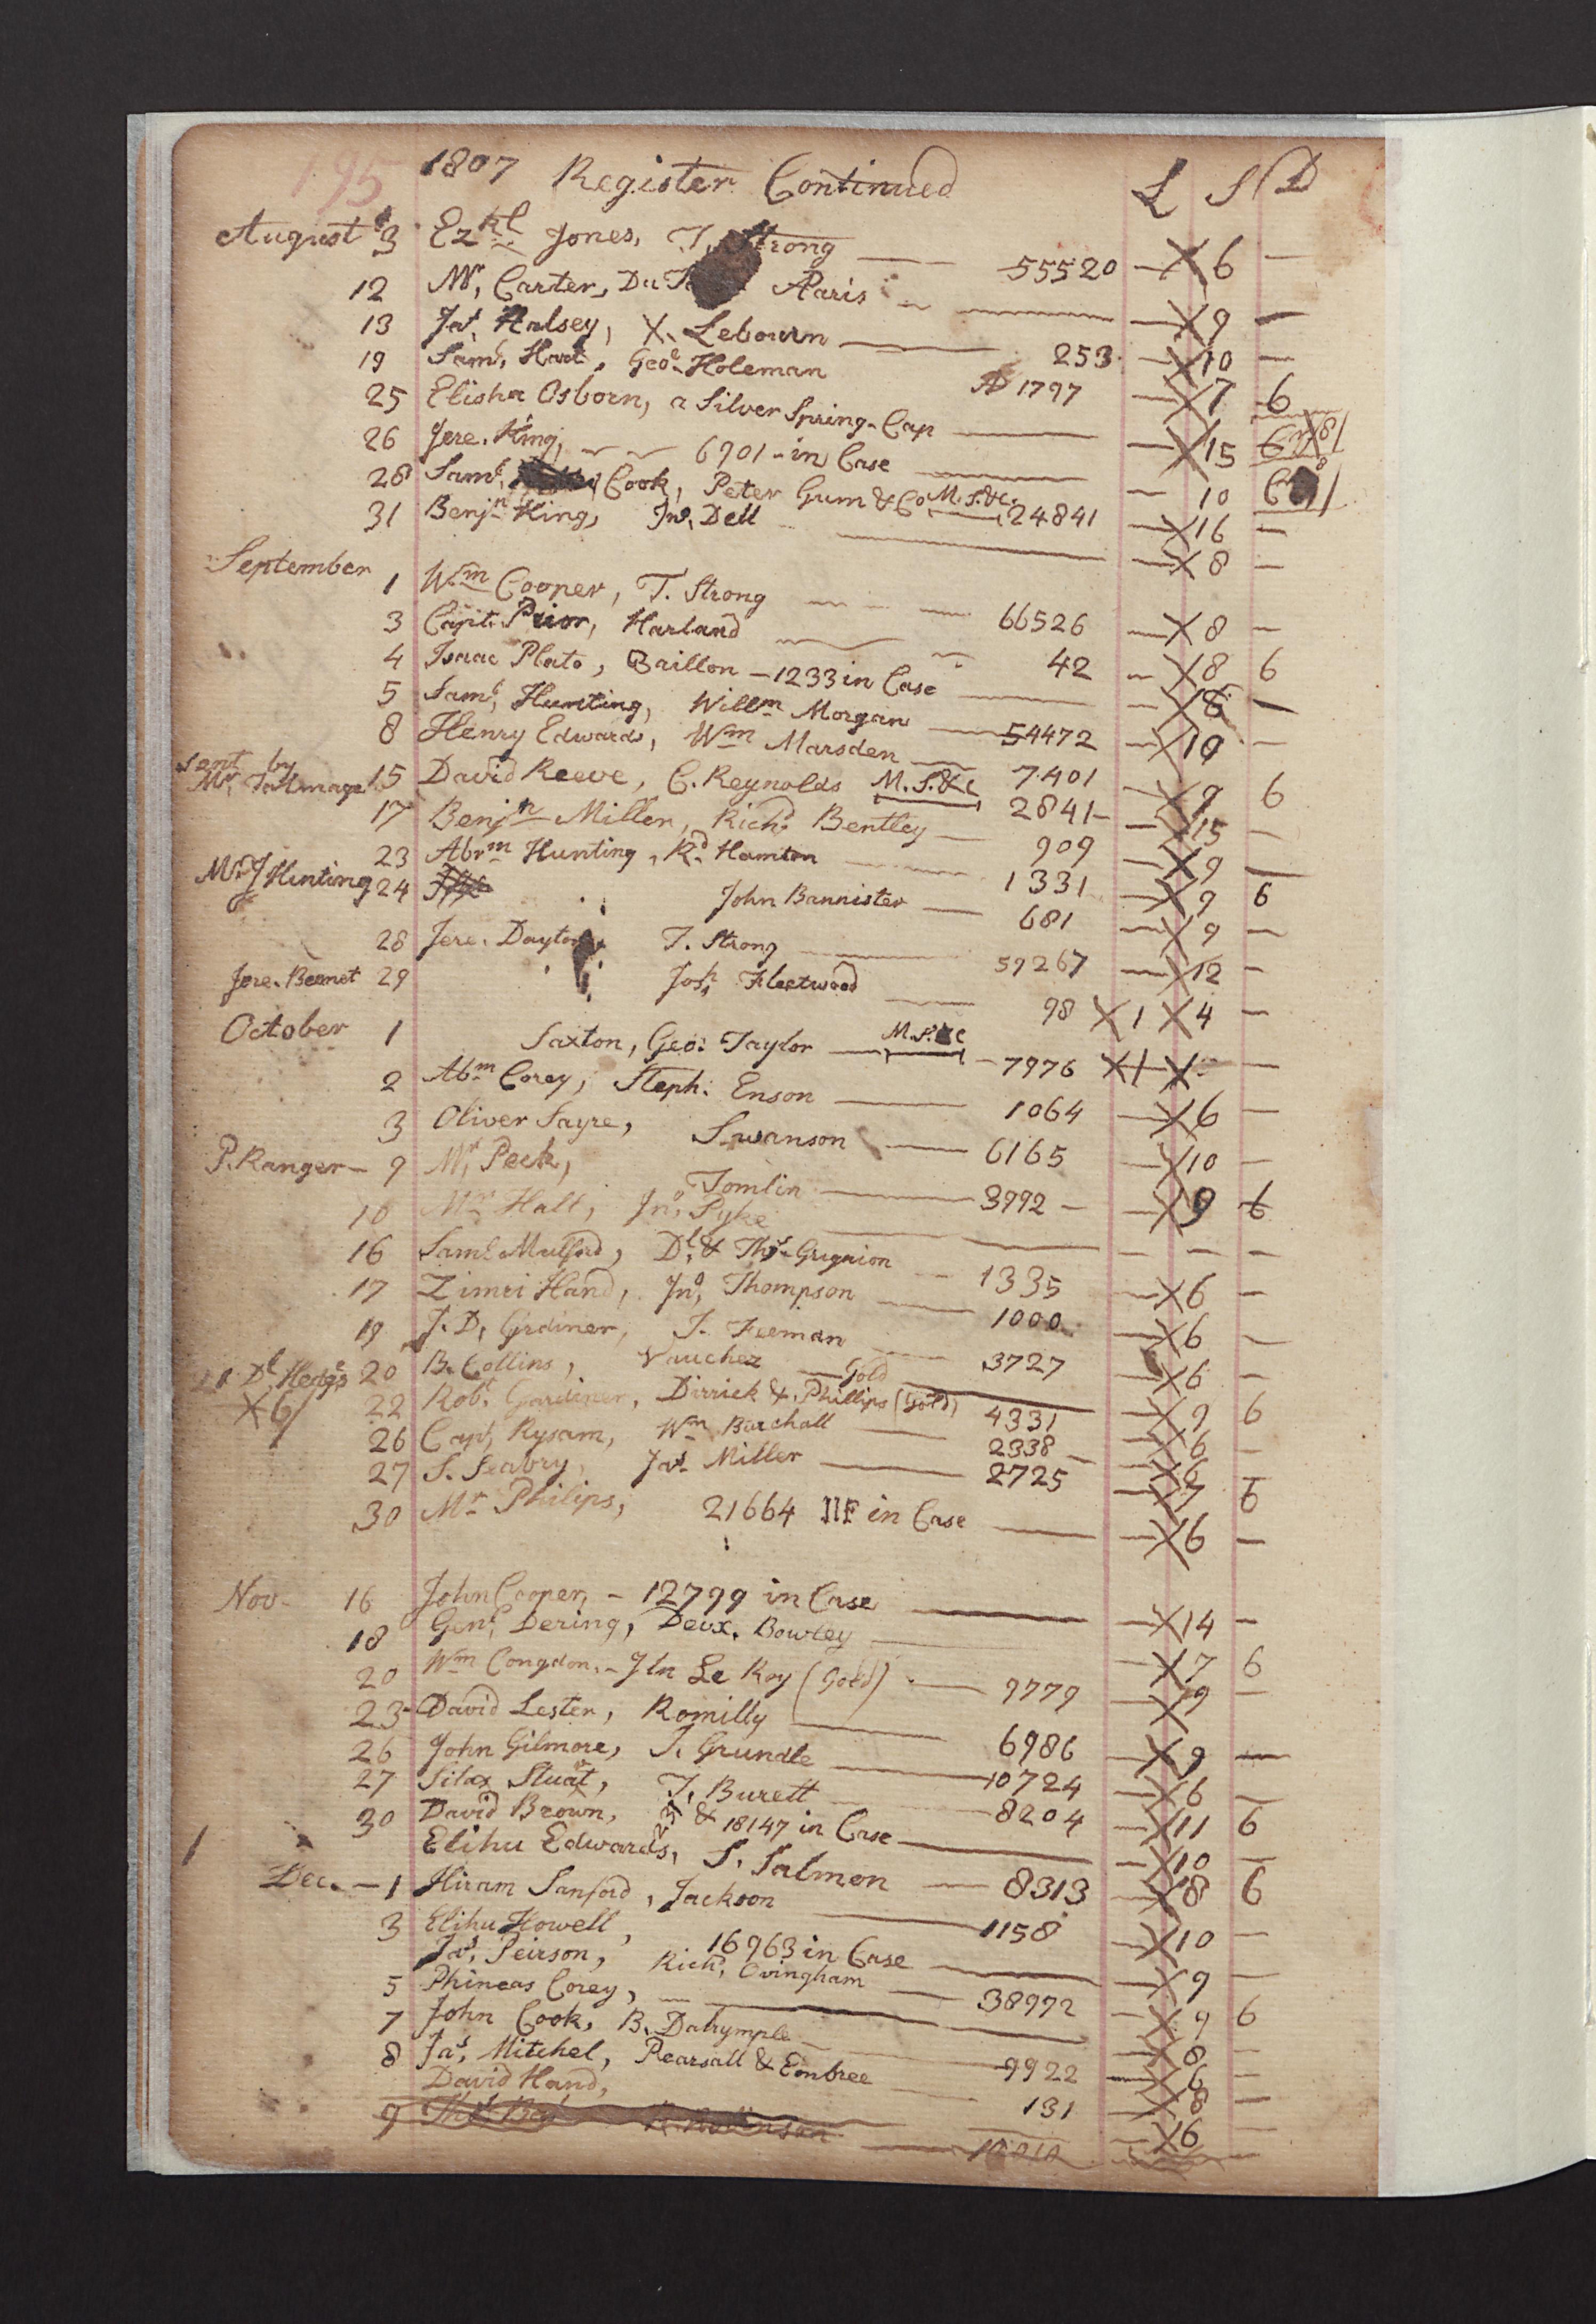 195 1807 Register Continued £ S D
August 3 Ezkl Jones, T. Strong — 55520 — X 6 —
12 Mr. Carter, Du Paris — — X 9 —
13 Jas. Halsey, X. Lebourn — 253 — X 10 —
19 Saml. Hart, Geoe Holeman AD 1797 — X 7 6
25 Elisha Osborn, a Silver Spring-Cap — — X 15
26 Jere. King, — 6901 - in Case — — 10
28 Saml. Cook, Peter Gum & Co M.S.&c. 24841 — X 16 —
31 Benjn King, Jno. Dell — — X 8 —
September 1 Wm Cooper, T. Strong — 66526 — X 8 —
3 Capt. Prior, Harland — 42 — X 8 6
4 Isaac Plato, Baillon — 1233 in Case — — X 8 —
5 Saml. Hunting, Willm Morgan — 54472 — X 10 —
8 Henry Edwards, Wm Marsden — 7401 — X 9 6
sent by
Mr. Talmage 15 David Reeve, C. Reynolds M.S.&c 2841 — X 15 —
17 Benjn Miller, Richd Bentley — 909 — X 9 —
23 Abrm Hunting, Rd. Hamton — 1331 — X 9 6
Mr. J Hunting 24 John Bannister — 681 — X 9 —
28 Jere. Dayton, T. Strong — 59267 — X 12 —
Jere. Bennet 29 Josh. Fleetwood — 98 X 1 X 4 —
October 1 Saxton, Geo: Taylor — M.S.&c — 7976 X 1 X —
2 Abm Corey, Steph. Enson — 1064 — X 6 —
3 Oliver Sayre, Swanson — 6165 — X 10 —
P. Ranger — 9 Mr. Peck, Tomlin — 3992 — X 9 6
10 Mr Hall, Jno. Pyke — — — —
16 Saml Mulford, Dl. & Thos Grignion — 1335 — X 6 —
17 Zimri Hand, Jno. Thompson — 1000 — X 6 —
19 J. D. Grdiner, J. Feeman — 3727 — X 6 —
21 Dl. Hedgs 20 B. Collins, Vauchez — Gold — X 9 6
X 6/ 22 Robt. Gardiner, Dirrick & Phillips (Gold) 4331 — X 6 —
26 Capt. Rysam, Wm Burchall — 2338 — X 6 —
27 S. Seabry, Jas. Miller — 2725 — X 7 6
30 Mr Philips, 21664 NF in Case — — X 6 —
Nov. 16 John Cooper, — 12799 in Case — — X 14 —
18 Genl. Dering, Devx. Bowley — — X 7 6
20 Wm Congdon, — Jln Le Roy (Gold) — 9779 — X 9 —
23 David Lester, Romilly — 6986 — X 9 —
26 John Gilmore, J. Grundle — 10724 — X 6 —
27 Silas Stuart, T. Burett — 8204 — X 11 6
30 David Brown, & 18147 in Case — — X 10 —
Elihu Edwards, S. Salmon — 8313 — X 8 6
Dec. — 1 Hiram Sanford, Jackson — 1158 — X 10 —
3 Elihu Howell, 16963 in Case — — X 9 —
Jas. Peirson, Richd. Ovingham — 38972 — X 9 6
5 Phineas Corey, — — X 8 —
7 John Cook, B. Dalrymple — 9922 — X 6 —
8 Jas. Mitchel, Pearsall & Embree — 131 — X 8 —
David Hand, — X 6 —
9